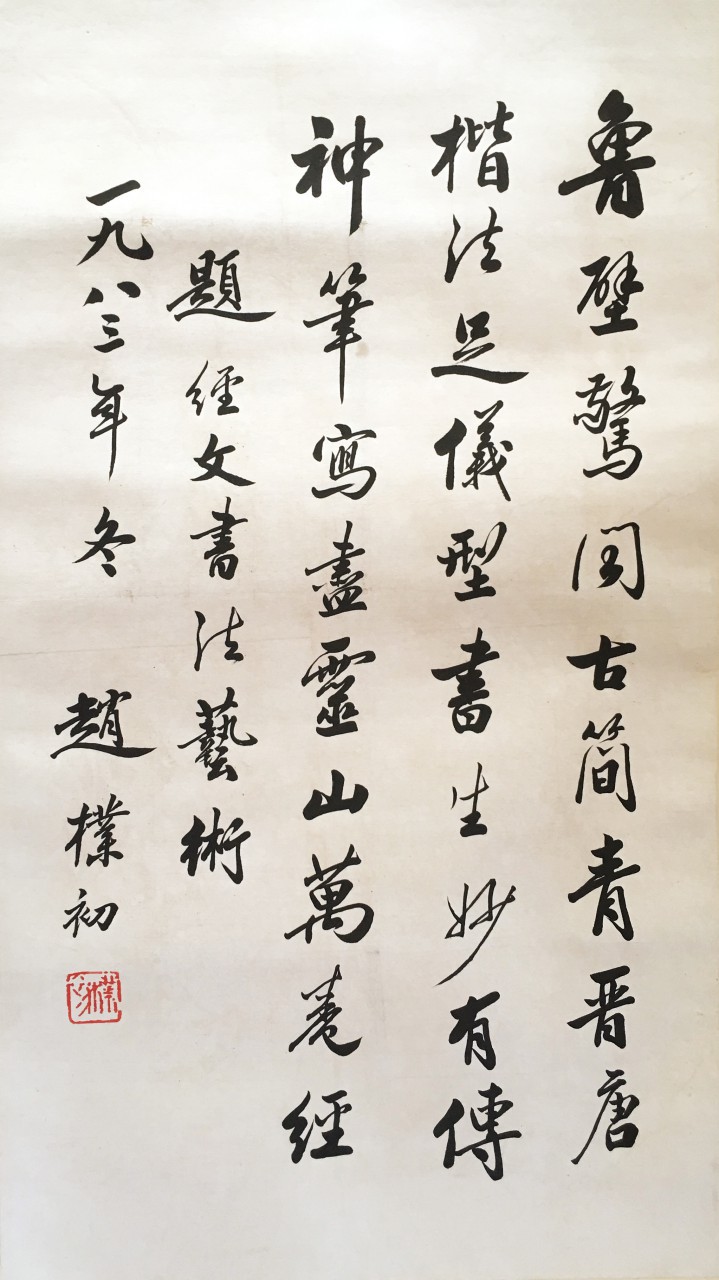 魯壁驚開古簡青晋唐
楷法足儀型書生妙有傳
神筆寫盡靈山萬卷經
題經文書法藝術
一九八三年冬
趙樸初